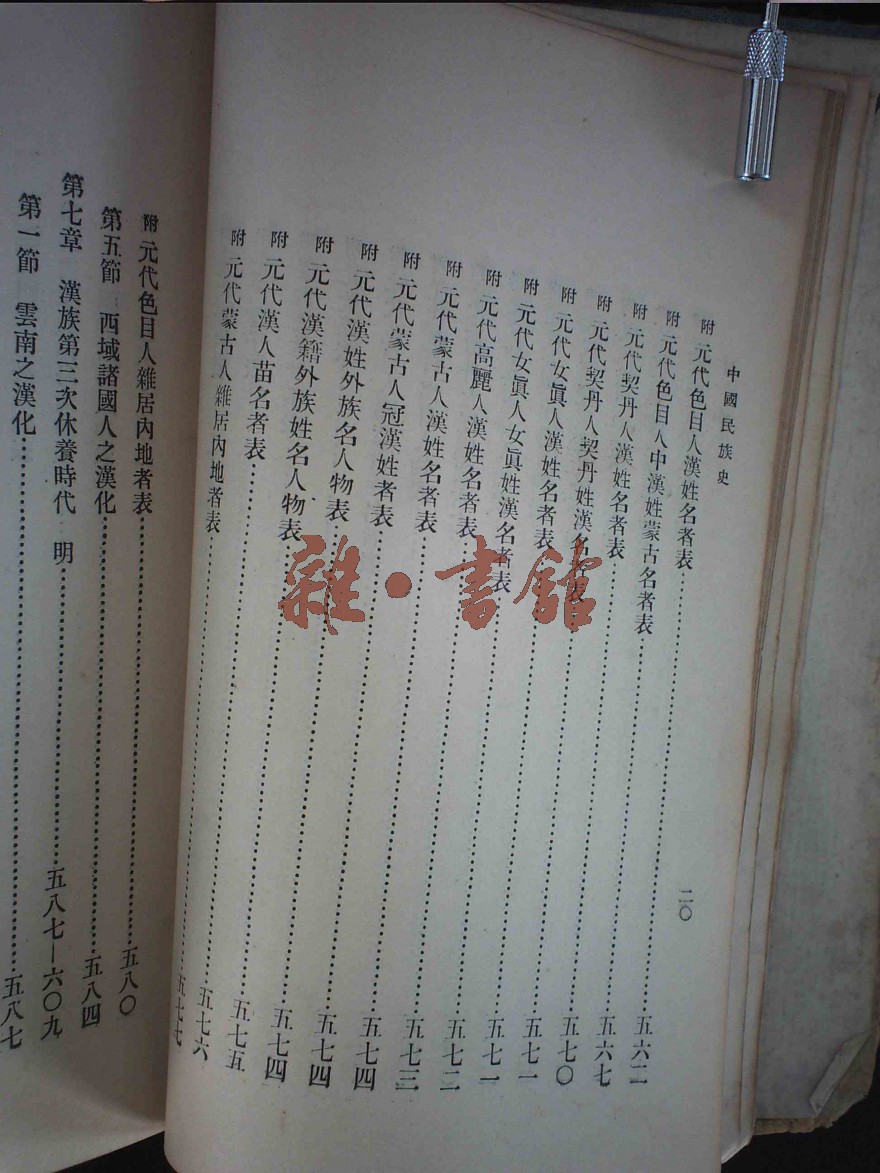 中國民族史 二〇
附 元代色目人漢姓名者表……五六二
附 元代色目人中漢姓蒙古名者表……五六七
附 元代契丹人漢姓名者表……五七〇
附 元代契丹人契丹姓漢名者表……五七一
附 元代女眞人漢姓名者表……五七一
附 元代女眞人女眞姓漢名者表……五七二
附 元代高麗人漢姓名者表……五七三
附 元代蒙古人漢姓名者表……五七四
附 元代蒙古人冠漢姓者表……五七四
附 元代漢姓外族名人物表……五七四
附 元代漢籍外族姓名人物表……五七五
附 元代漢人苗名者表……五七六
附 元代蒙古人雜居內地者表……五七七
附 元代色目人雜居內地者表……五八〇
第五節 西域諸國人之漢化……五八四
第七章 漢族第三次休養時代 明……五八七—六〇九
第一節 雲南之漢化……五八七
雜·書館